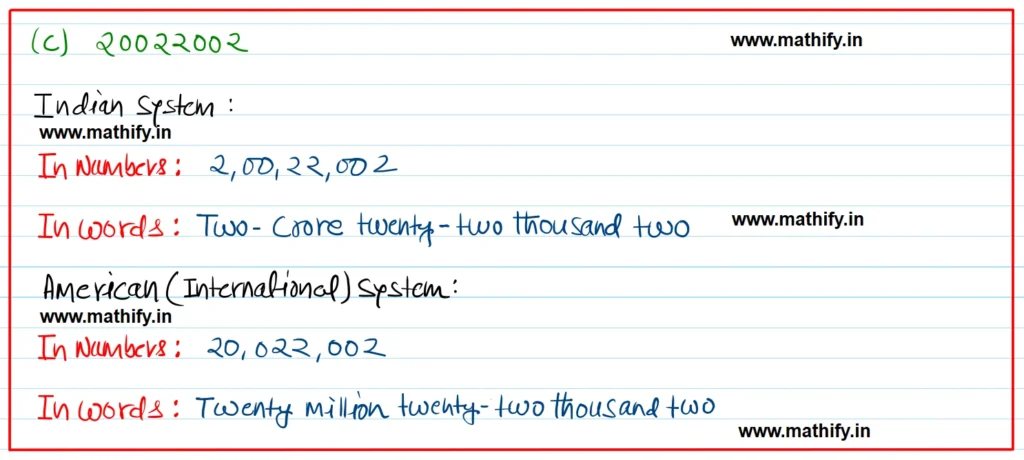 (C) 20022002
www.mathify.in
Indian System :
www.mathify.in
In Numbers : 2,00,22,002
In words : Two-Crore twenty-two thousand two
www.mathify.in
American (International) System :
www.mathify.in
In Numbers : 20,022,002
In words : Twenty million twenty-two thousand two
www.mathify.in